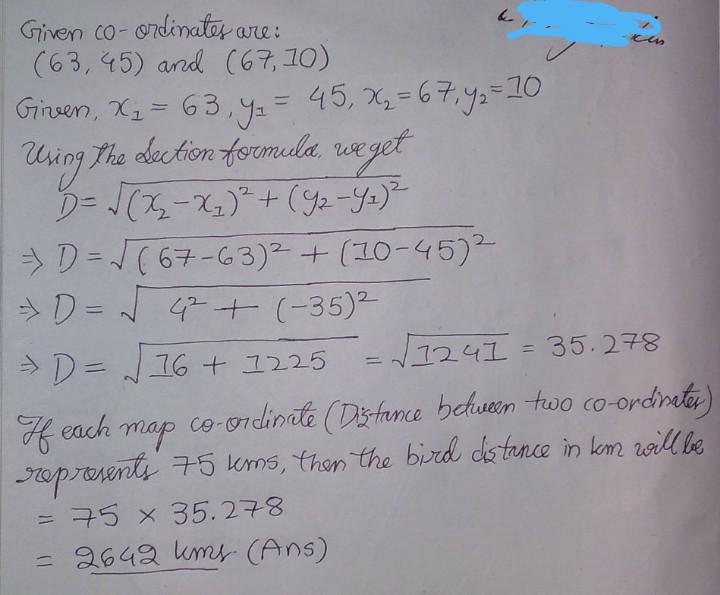 Given co-ordinates are:
(63, 45) and (67, 10)
Given, x₁ = 63, y₁ = 45, x₂ = 67, y₂ = 10
Using the Section formula, we get
D = √(x₂ - x₁)² + (y₂ - y₁)²
⇒ D = √(67-63)² + (10-45)²
⇒ D = √4² + (-35)²
⇒ D = √16 + 1225 = √1241 = 35.278
If each map co-ordinate (Distance between two co-ordinates)
represents 75 kms, then the bird distance in km will be
= 75 × 35.278
= 2642 kms (Ans)